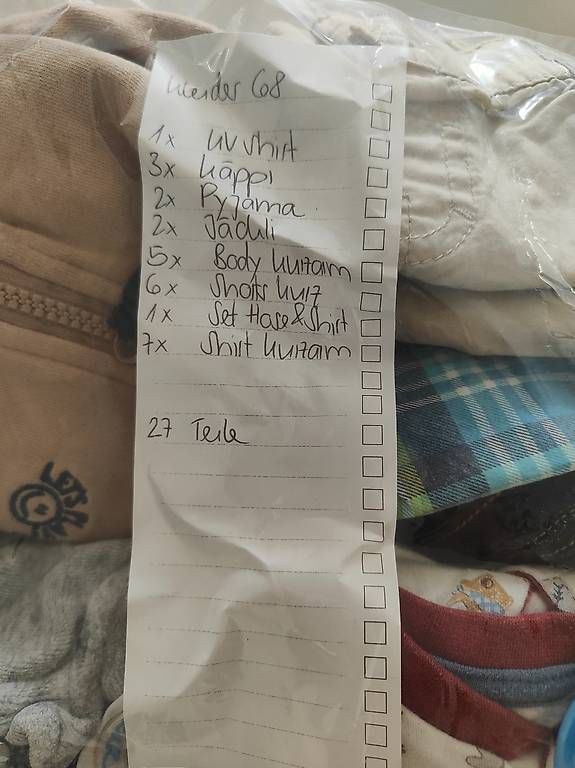 Kleider 68
1x UV Shirt
3x Käppi
2x Pyjama
2x Jäckli
5x Body kurzarm
6x Shorts kurz
1x Set Hose & Shirt
7x Shirt kurzarm
27 Teile